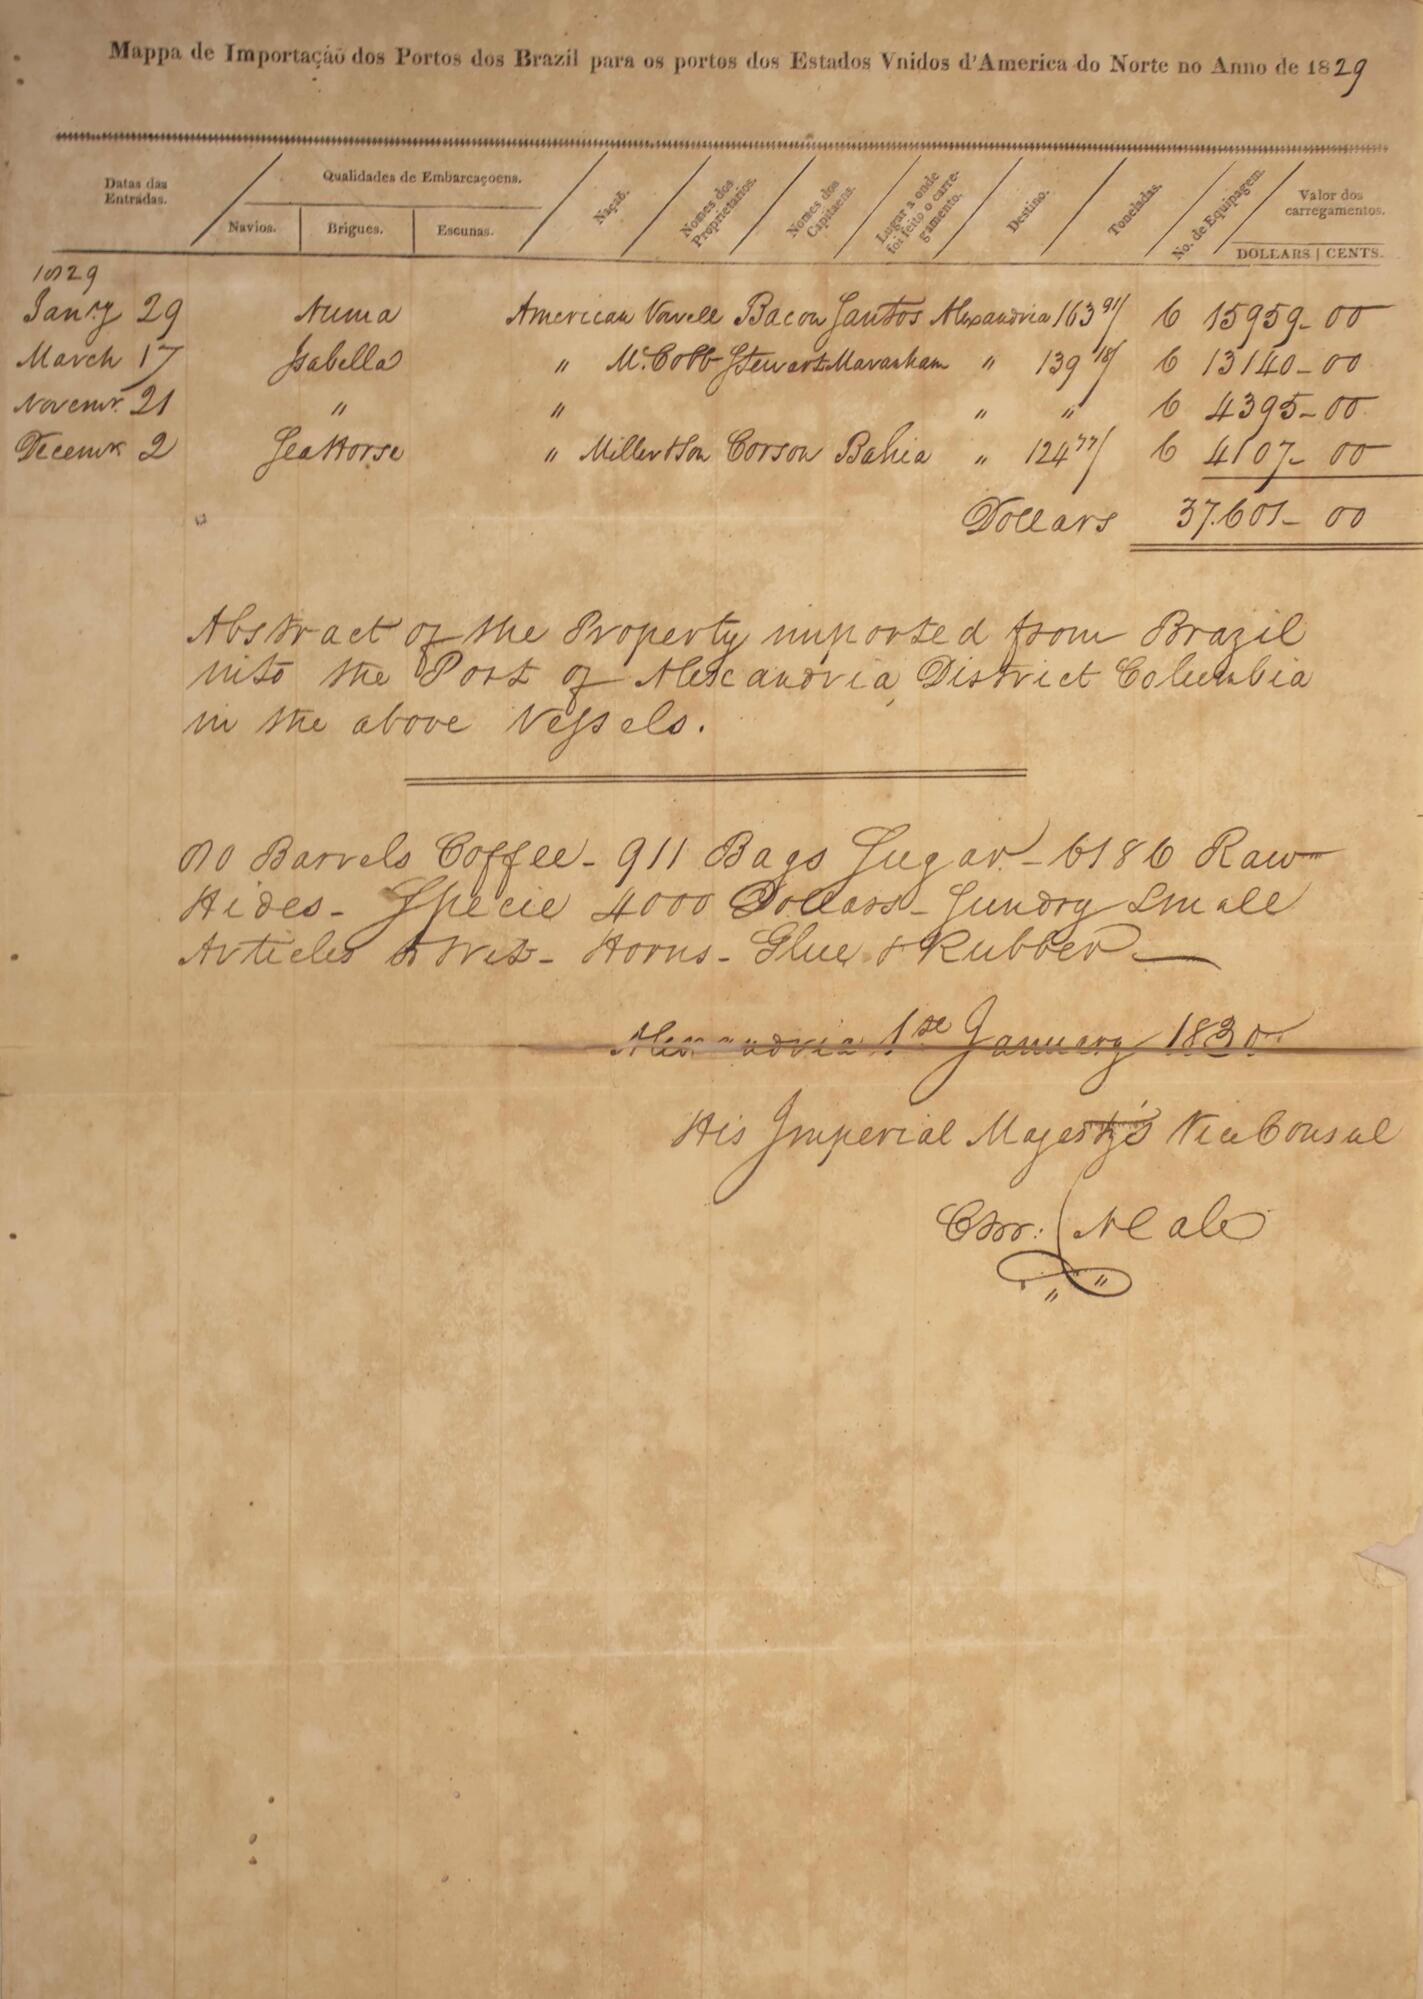 Mappa de Importaçaõ dos Portos dos Brazil para os portos dos Estados Vnidos d'America do Norte no Anno de 1829
Datas das Entradas.
Qualidades de Embarcaçoens.
Navios. Brigues. Escunas.
Naçaõ.
Nomes dos Proprietarios.
Nomes dos Capitaens.
Lugar a onde foi feito o carregamento.
Destino.
Toneladas.
No. de Equipagem.
Valor dos carregamentos.
DOLLARS | CENTS.
1829
Janry 29 Numa American Vowell Bacon Santos Alexandria 163 91/ 6 15959-00
March 17 Isabella " McCobb Stewart Maranham " 139 18/ 6 13140-00
Novemr 21 " " " " 6 4395-00
Decemr 2 Sea Horse " Miller & Son Corson Bahia " 124 77/ 6 4107-00
Dollars 37.601-00
Abstract of the Property imported from Brazil
into the Port of Alexandria, District Columbia
in the above Vessels.
Barrels Coffee - 911 Bags Sugar - 6186 Raw
Hides - Specie 4000 Dollars - Sundry Small
Articles Horns - Glue & Rubber
Alexandria 1st January 1830
His Imperial Majesty's Vice Consul
Chr: Neale